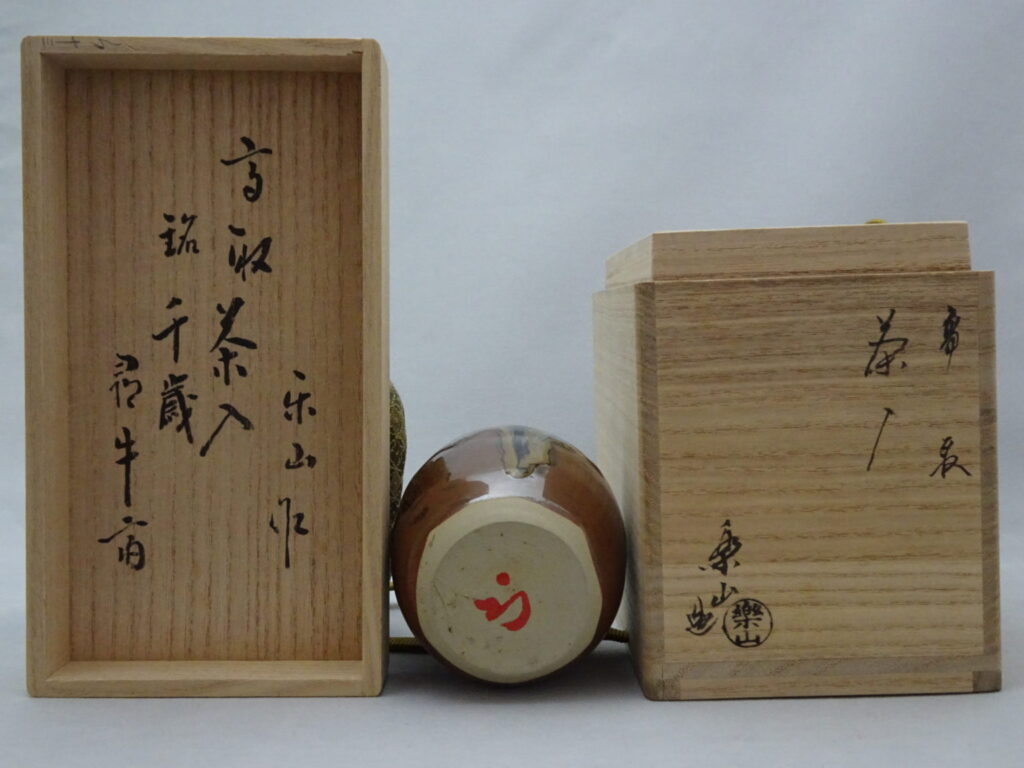 楽山作
高取茶入
銘 千歳
尋牛斎
高取
茶入
楽山造
樂山